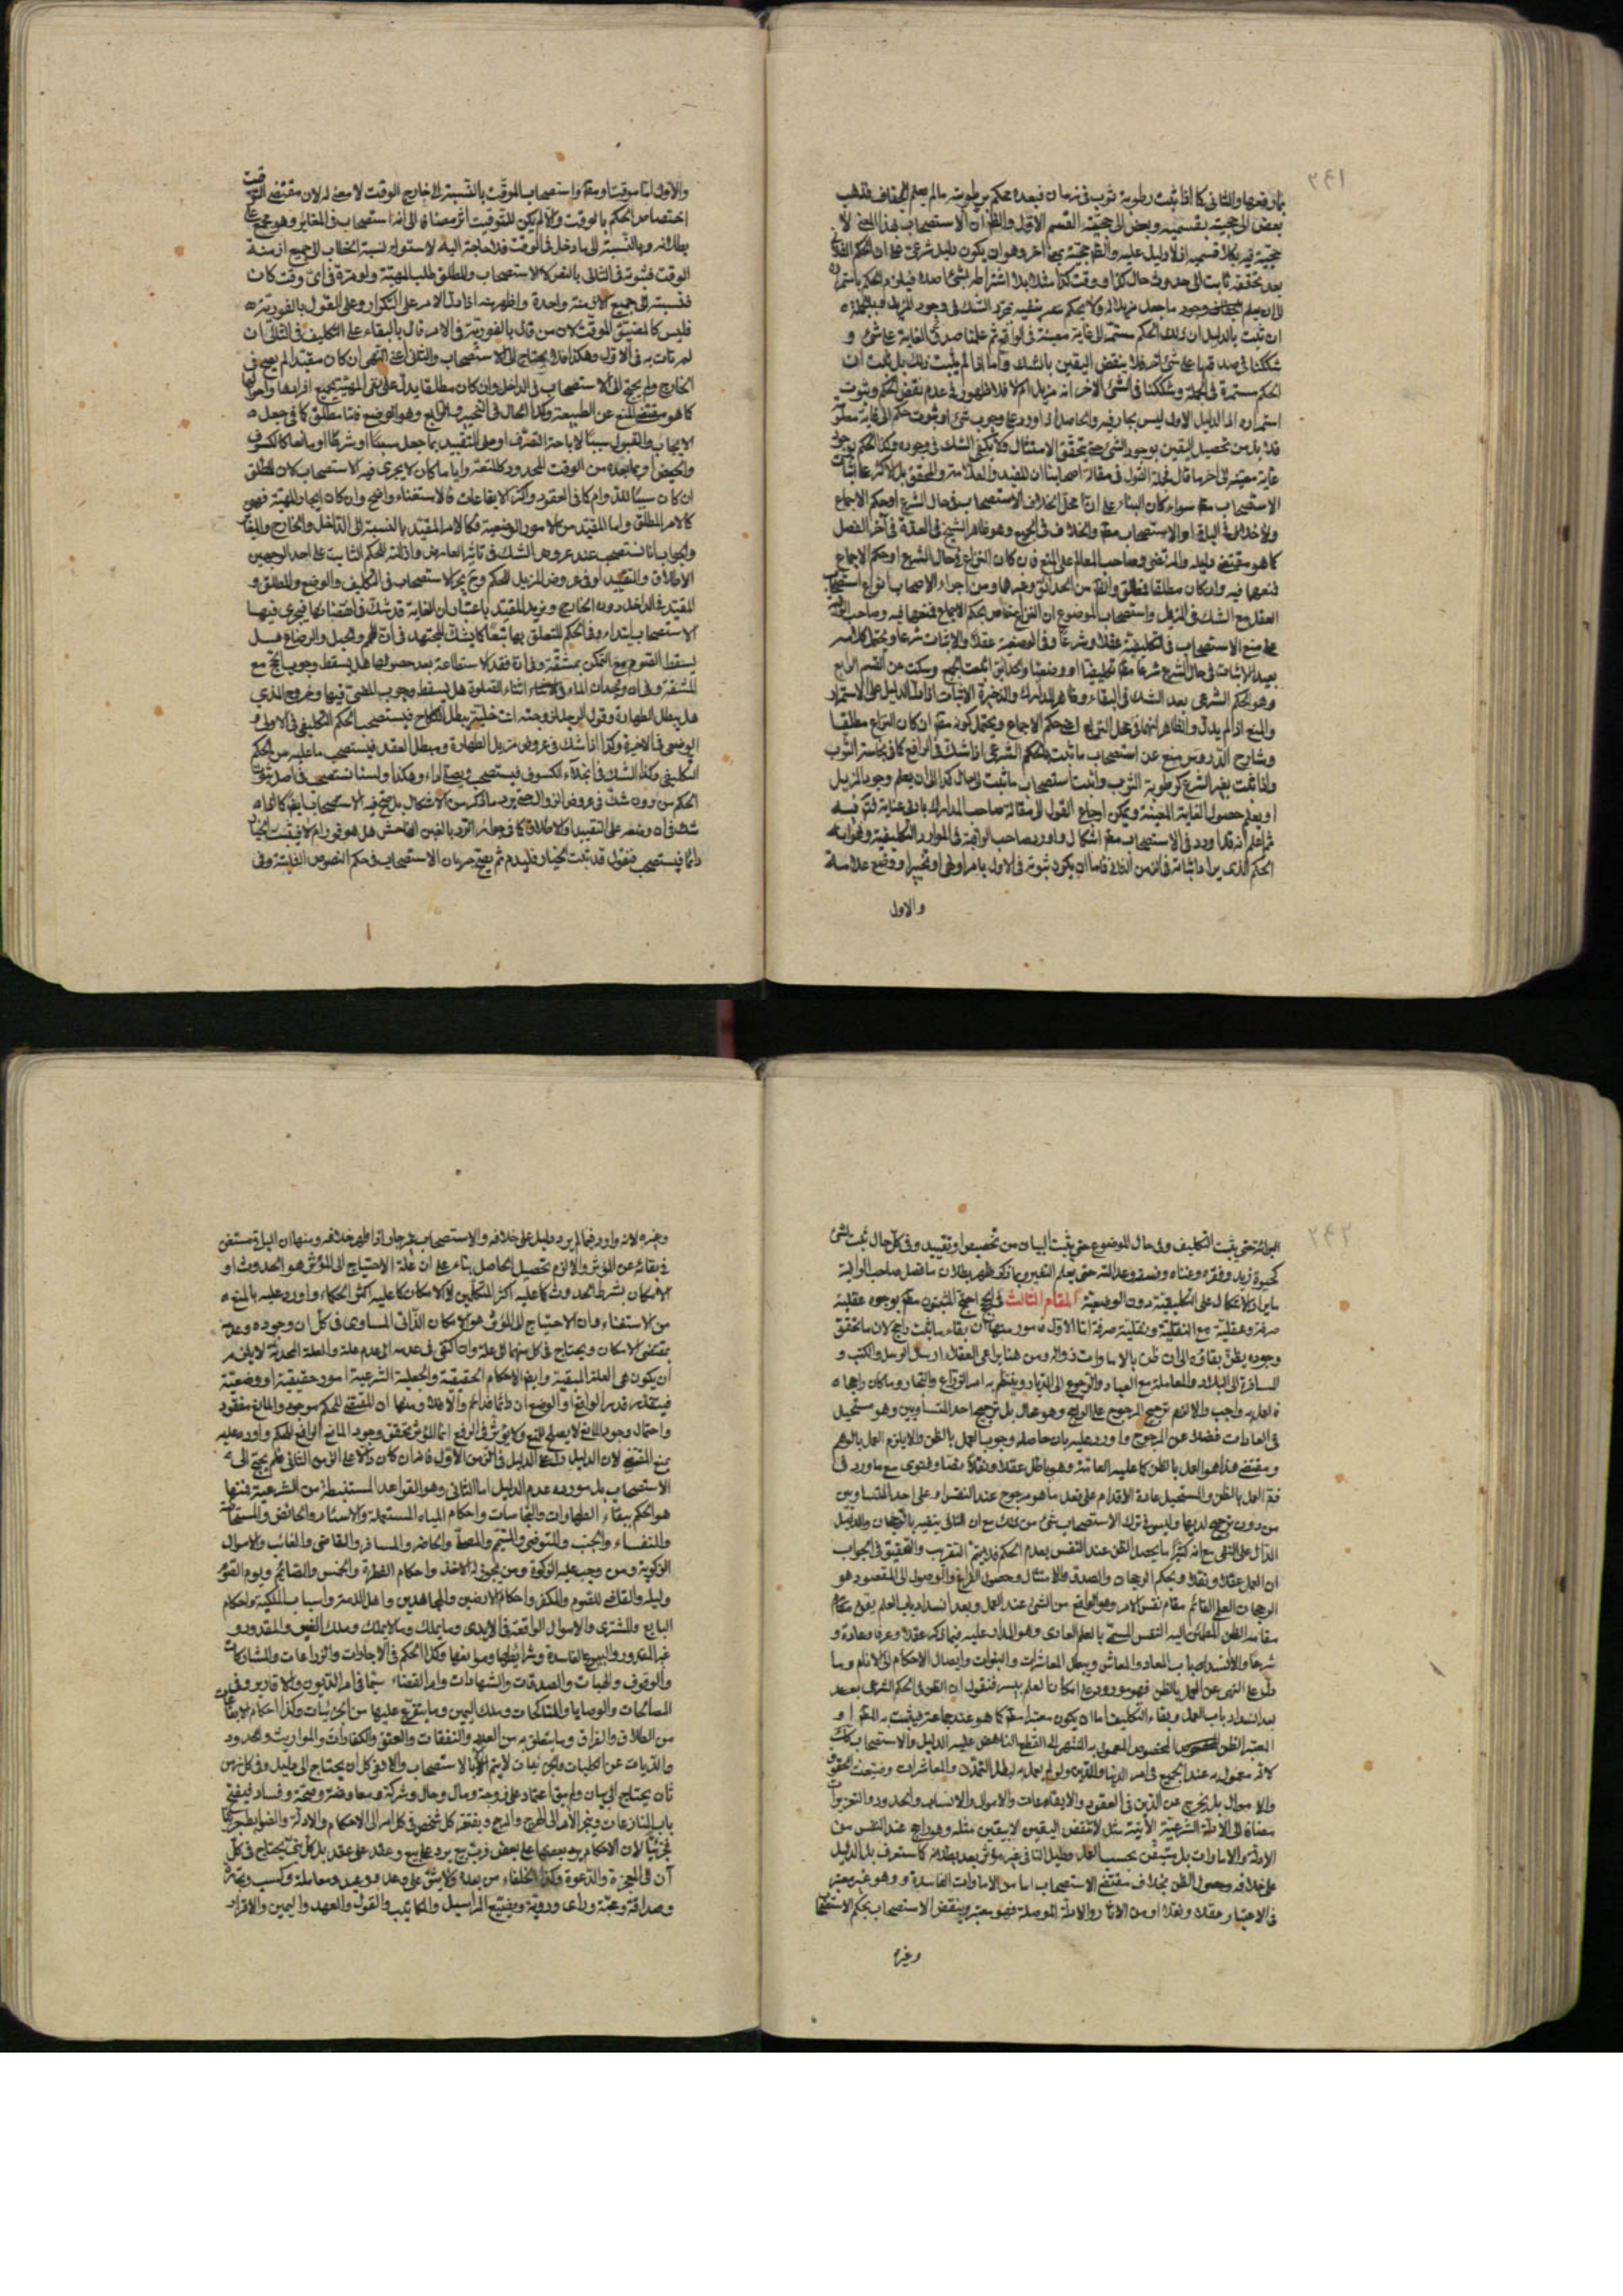 بعض الى حجيته بقسميه وبعض الى حجية القسم الاول والظ ان الاستصحاب بهذا المعنى لا
حجية فيه بكلا قسميه اذ لا دليل عليه والظ حجيته بمعنى اخر وهو ان يكون دليل شرعي على ان الحكم الفلاني
بعد تحققه ثابت الى حدوث حال كذا او وقت كذا مثلا بلا اشتراط بشئ اصلا فيلزم الحكم باستمراره
الى ان يعلم وجود ما جعل مزيلا له ولا يحكم بنفيه بمجرد الشك في وجود المزيل
ان ثبت بالدليل ان ذلك الحكم مستمر الى غاية معينة في الواقع ثم علمنا صدق الغاية على شئ و
شككنا في صدقها على شئ اخر فلا ينقض اليقين بالشك واما اذا لم يثبت ذلك بل ثبت ان
الحكم مستمر في الجملة وشككنا في الشئ الاخر انه مزيل ام لا فلا ظهور في عدم نقض الحكم وثبوت
استمراره اذ الدليل الاول ليس بجار فيه والحاصل اذا ورد على وجوب شئ او ثبوت حكم الى غاية معلق
فلا بد من تحصيل اليقين بوجود الشئ حتى يتحقق الامتثال ولا يكفي الشك في وجوده وكذا الحكم بوجود
غاية معينة الى اخر ما قال
الاستصحاب مقم سواء كان البناء على ان محل الخلاف الاستصحاب في حال الشرع او حكم الاجماع
كما هو مقتضى دليله والمرتضى وصاحب المعالم على المنع فان كان النزاع في حال الشرع او حكم الاجماع
العقل مع الشك في المزيل واستصحاب الموضوع ان النزاع بحكم الاجماع
على منع الاستصحاب في التكليفية عقلا وشرعا وفي الوضعية عقلا والاثبات شرعا ويحتمل كلامه
وهو الحكم الشرعي بعد الشك في البقاء وظاهر المدارك والذخيرة الاثبات اذا دل الدليل على الاستمرار
والمنع اذا لم يدل والظاهر انهما في محل النزاع اعني حكم الاجماع ويحتمل كونه مقم ان كان النزاع مطلقا
وشارح الدروس منع عن استصحاب ما ثبت بالحكم الشرعي اذا شك في الرافع كما في نجاسة الثوب
واذا ثبت بغير الشرع كرطوبة الثوب واثبت استصحاب ما ثبت الى حال كذا الى ان يعلم وجود المزيل
او يعلم حصول الغاية المعينة ويمكن ارجاع القول الى مقالة صاحب المدارك
ثم اعلم انه قد اورد في الاستصحاب مقم اشكال واورد صاحب الوافية في الموارد التكليفية
الحكم الذي يراد اثباته في الزمن الثاني فاما ان يكون ثبوته في الاول بامر او نهي او تخيير او وضع علامة
والاول
والاول اما موقت او مقم واستصحاب الموقت بالنسبة الى خارج الوقت لا معنى له لان مقتضى التوقيت
اختصاص الحكم بالوقت والا لم يكن للتوقيت اثر مضافا الى انه استصحاب في المغاير وهو مجمع على
بطلانه وبالنسبة الى ما دخل في الوقت فلا حاجة اليه لاستواء نسبة الخطاب الى جميع ازمنة
الوقت فثبوته في الثاني بالنص لا الاستصحاب والمطلق طلب المهية ولو مرة في اي وقت كان
فنسبته الى جميع الازمنة واحدة واظهر منه اذا دل الامر على التكرار وعلى القول بالفورية
فليس كالمضيق الموقت لان من قال بالفورية في الامر قال بالبقاء على التكليف في الثاني ان
لم يات به في الاول وهكذا فلا يحتاج الى الاستصحاب والثاني اعني النهي ان كان مقيدا لم يصح في
الخارج ولم يحتج الى الاستصحاب في الداخل وان كان مطلقا يدل على نفي المهية بجميع افرادها واحوالها
كما هو مقتضى المنع عن الطبيعة وكذا الحال في التخيير والرابع وهو الوضع فاما مطلق كما في جعل
الايجاب والقبول سببا لاباحة التصرف او على التقييد بما جعل سببا او شرطا او مانعا كالكسوف
والحيض او بما بعده من الوقت المحدود كالمتعة وايا ما كان لا يجري فيه الاستصحاب لان المطلق
ان كان سببا للدوام كما في العقود واكثر الايقاعات فالاستغناء واضح وان كان ايجاد المهية فهو
كالامر المطلق واما المقيد من الامور الوضعية فكالامر المقيد بالنسبة الى الداخل والخارج
والجواب انا نستصحب عند عروض الشك في تاثير العارض وازالته للحكم الثابت على احد الوجهين
الاطلاق والتقييد او في عروض المزيل للحكم وح يجري الاستصحاب في التكليف والوضع والمطلق و
المقيد في الداخل دون الخارج ويزيد المقيد باعتبار ان الغاية قد شك في انقضائها فيجري فيها
يسقط الصوم مع التمكن بمشقة وفي ان فقد الاستطاعة بعد حصولها هل يسقط وجوب الحج مع
المشقة وفي ان وجدان الماء في اثناء الصلوة هل يسقط وجوب المضي فيها وخروج المذي
هل يبطل الطهارة وقول الرجل لزوجته انت خلية يبطل النكاح فيستصحب الحكم التكليفي في الاولى و
الوضعي في الاخيرة وكذا اذا شك في عروض مزيل الطهارة ومبطل العقد فيستصحب ما عليه من الحكم
التكليفي وكذا الشك في انجلاء الكسوف فيستصحب ويصح اداء وهكذا ولسنا نستصحب في اصل ثبوت
الحكم من دون شك في عروض الزوال حتى يرد ما ذكر من الاشكال بل يصح فيه الاستصحاب ايضا كما اذا
دائما فيستصحب فنقول قد ثبت الخيار فليدم ثم يصح جريان الاستصحاب في حكم النصوص المثبتة وفي
البرائة حتى يثبت التكليف وفي حال الموضوع حتى يثبت البيان من تخصيص او تقييد وفي كل حال ثبت لشئ
كحيوة زيد وفقره وغناه وفسقه وعدالته حتى يعلم التغيير وبما ذكر ظهر بطلان ما فصل صاحب الوافية
بايراد الاشكال على التكليفية دون الوضعية المقام الثالث في الحجج احتج المثبتون مقم بوجوه عقلية
صرفة وعقلية مع النقلية ونقلية صرفة اما الاول فامور منها ان بقاء ما ثبت راجح لان ما تحقق
وجوده يظن بقاؤه الى ان ظن بالامارات زواله ومن هنا يراعي العقلاء ارسال الرسل والكتب و
المسافرة الى البلاد والمعاملة مع العباد والرجوع الى الديار وينتظم به امر الزراع والتجار وما كان راجحا
فالعمل به واجب والا لزم ترجيح المرجوح على الراجح وهو محال بل ترجيح احد المتساويين وهو مستحيل
في العادات فضلا عن المرجوح واورد عليه بان حاصله وجوب العمل بالظن والا يلزم العمل بالوهم
ومقتضى هذا هو العمل بالظن كما عليه العامة وهو باطل عقلا ونقلا نصا وفتوى مع ما ورد في
ذم العمل بالظن والمستحيل عادة الاقدام على فعل ما هو مرجوح عند النفس او على احد المتساويين
من دون ترجيح لديها وليس في ترك الاستصحاب شئ من ذلك مع ان الثاني ينفيه بالرجحان والدليل
الدال على النفي مع انه كثيرا ما يحصل الظن عند النفس بعدم الحكم فلا يتم التقريب والتحقيق في الجواب
ان العمل عقلا ونقلا وبحكم الوجدان والصدق والامتثال وحصول الفراغ والوصول الى المقصود هو
الرجحان العلمي القائم مقام نفس الامر وهو الواقع من الشئ عند العمل وبعد انسداد باب العلم يقوم مقام
مقامه الظن المطمئن اليه النفس المسمى بالعلم العادي وهو المدار عليه فيما ذكر عقلا وعرفا وعادة و
شرعا والا انسد باب المعاد والمعاش ويبطل المعاشرات والنبوات وايصال الاحكام الى الانام وما
دل على النهي عن العمل بالظن فهو مورده على امكان العلم بيسر فنقول ان الظن في الحكم الشرعي بعد
بعد انسداد باب العلم وبقاء التكليف اما ان يكون معتبرا مقم كما هو عند جماعة فيثبت به المقم او
المعتبر الظن المخصوص المعمول به المنتهي الى القطع الناهض عليه الدليل والاستصحاب كذلك
لانه معمول به عند الجميع في امر الدنيا والدين ولو لم يعمل به لبطل التمدن والمعاشرات وضيعت الحقوق
والاموال بل يخرج عن الدين في العقود والايقاعات والاموال والانساب والحدود والتعزيرات
مضافا الى الادلة الشرعية الآتية مثل لا تنقض اليقين الا بيقين مثله وهو راجح عند النفس من
الادلة والامارات بل متيقن بحسب العمل ودليل النافي غير مؤثر بعد بطلانه كما ستعرف بل الدليل
على خلافه وحصول الظن بخلاف مقتضى الاستصحاب اما من الامارات الفاسدة وهو غير معتبر
في الاعتبار عقلا ونقلا او من الاثار والادلة الموصلة فهو معتبر وينقض الاستصحاب بحكم الاستصحاب
وغيره
وغيره لانه وارد فيما لم يرد دليل على خلافه والاستصحاب غير جار اذا ظهر خلافه ومنها ان الباقي مستغن
في بقائه عن المؤثر والا لزم تحصيل الحاصل بناء على ان علة الاحتياج الى المؤثر هو الحدوث او
الامكان بشرط الحدوث كما عليه اكثر المتكلمين لا الامكان كما عليه اكثر الحكماء واورد عليه بالمنع
من الاستغناء فان الاحتياج الى المؤثر هو الامكان الذاتي المساوي في كل ان وجوده وعدمه
بمقتضى الامكان ويحتاج في كل منهما الى علة وان اكتفى في عدمه الى عدم علة والعلة المحدثة لا يلزم
ان يكون هي العلة المبقية وايضا الاحكام الحقيقية والجعلية الشرعية امور حقيقية او وضعية
فيتقدر بقدر الواقع او الوضع ان دائما فدائم والا فلا ومنها ان المقتضي للحكم موجود والمانع مفقود
واحتمال وجود المانع لا يصلح للمنع ولا يؤثر في الرفع انما المؤثر تحقق وجود المانع الرافع للحكم واورد عليه
بمنع المقتضي لان الدليل في الزمن الاول فان كان دالا على الزمن الثاني فلم يحتج الى
الاستصحاب بل مورده عدم الدليل اما الثاني وهو القواعد المستنبطة من الشرعية فمنها
هو الحكم ببقاء الطهارات والنجاسات واحكام المياه المستعملة والاسئار والحائض والمستحاضة
والنفساء والجنب والمتوضي والمتيمم والمصلي والحاضر والمسافر والقاضي والغائب والاموال
الزكوية ومن وجب عليه الزكوة ومن يجوز له الاخذ واحكام الفطرة والخمس والصائم ويوم الصوم
وليله والقاطع للصوم والمكفر واحكام الارضين والمجاهدين واهل الذمة واسباب الملكية واحكام
البايع والمشتري والاموال الواقعة في الايدي وما يملك وما لا يملك وملك الغير والمقدور و
غير المقدور والبيوع الفاسدة وشرايطها وموانعها وكذا الحكم في الاجارات والزراعات والمشاركات
والوقوف والهبات والصدقات والشهادات وامر القضاء سيما في امر الديون والاقارير وفي
المصالحات والوصايا والمناكحات وملك اليمين وما يتفرع عليها من الجزئيات وكذا احكام الايقاعات
من الطلاق والفراق وما يتعلق به من العدة والنفقات والعتق والكفارات والمواريث والحدود
والديات عن الكليات والجزئيات لا يتم الا بالاستصحاب والا ففي كل ان يحتاج الى دليل وفي كل زمن
ثان يحتاج الى بيان ولم يبق اعتماد على زوجة ومال وحال وشركة ومعاوضة وصحة وفساد فينفتح
باب المنازعات وينجر الامر الى الهرج والمرج ويفتقر كل شخص في كل امر الى الاحكام والادلة
آن في المعجزة والدعوة وكذا الخلفاء من بعده ولا يبقى على وعد ووعيد ومعاملة وكسب وتجارة
وصداقة ومحبة ووداعة ودوية ويضيع المراسيل والمكاتيب والقول والعهد واليمين والاقرار